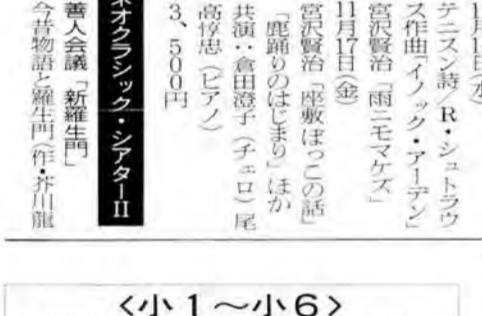 テニスン詩/R・シュトラウ
ス作曲「イノック・アーデン」
宮沢賢治「雨ニモマケズ」
11月17日(金)
宮沢賢治「座敷ぼっこの話」
「鹿踊りのはじまり」ほか
共演:倉田澄子(チェロ)尾
高惇忠(ピアノ)
3、500円
ネオクラシック・シアターII
善人会議「新羅生門」
今昔物語と羅生門(作・芥川龍
<小1～小6>